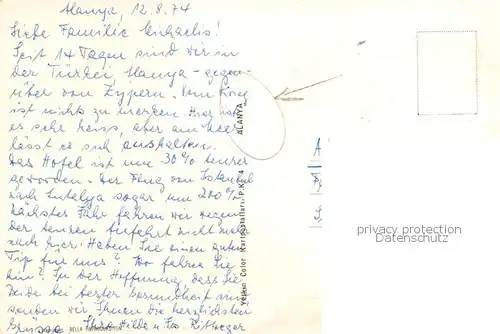 Alanya, 12.8.74
Liebe Familie Michaelis!
Seit 14 Tagen sind wir in
der Türkei, Alanya - gegen-
über von Zypern. Vom Krieg
ist nichts zu merken. Hier ist
es sehr heiss, aber am Meer
lässt es sich aushalten.
Das Hotel ist um 30% teurer
geworden. Der Flug von Istanbul
nach Antalya sogar um 200%
Nächstes Jahr fahren wir wegen
der teuren Anfahrt nicht mehr
nach hier. Haben Sie einen guten
Tip für uns? Wo fahren Sie
hin? In der Hoffnung, dass Sie
Beide bei bester Gesundheit sind
senden wir Ihnen die herzlichsten
Grüsse Ihre Hilde u.
ALANYA
Color Kartpostalları, P.K.
privacy protection
Datenschutz